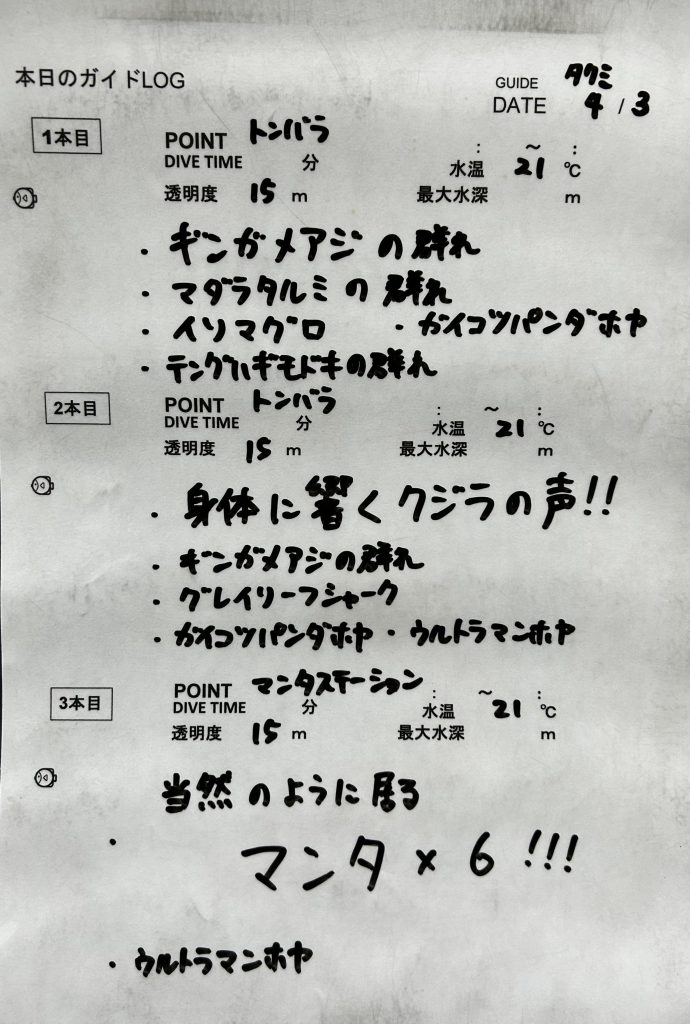 本日のガイドLOG
GUIDE タクミ
DATE 4 / 3
1本目
POINT トンバラ
DIVE TIME 分 : ～ :
水温 21 ℃
透明度 15 m 最大水深 m
・ギンガメアジの群れ
・マダラタルミの群れ
・イソマグロ ・ガイコツパンダホヤ
・テングハギモドキの群れ
2本目
POINT トンバラ
DIVE TIME 分 : ～ :
水温 21 ℃
透明度 15 m 最大水深 m
・身体に響くクジラの声!!
・ギンガメアジの群れ
・グレイリーフシャーク
・ガイコツパンダホヤ・ウルトラマンホヤ
3本目
POINT マンタステーション
DIVE TIME 分 : ～ :
水温 21 ℃
透明度 15 m 最大水深 m
当然のように居る
・マンタ×6!!!
・ウルトラマンホヤ